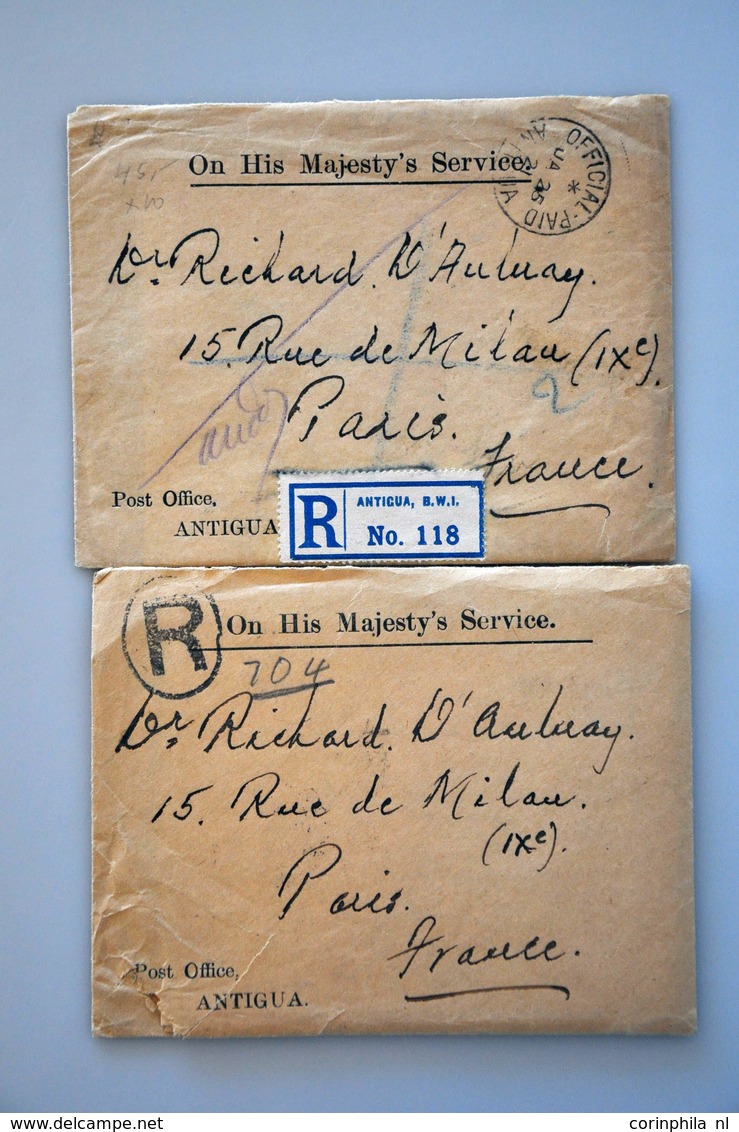 45,-
x10
On His Majesty's Service.
OFFICIAL-PAID
ANTIGUA
JA 2
25
Dr. Richard D'Aulnay.
15. Rue de Milan (IXe).
2
Paris.
France.
Post Office,
ANTIGUA
R
ANTIGUA, B.W.I.
No. 118
R
On His Majesty's Service.
704
Dr. Richard D'Aulnay.
15. Rue de Milan.
(IXe).
Paris.
France.
Post Office,
ANTIGUA.
www.delcampe.net
corinphila nl